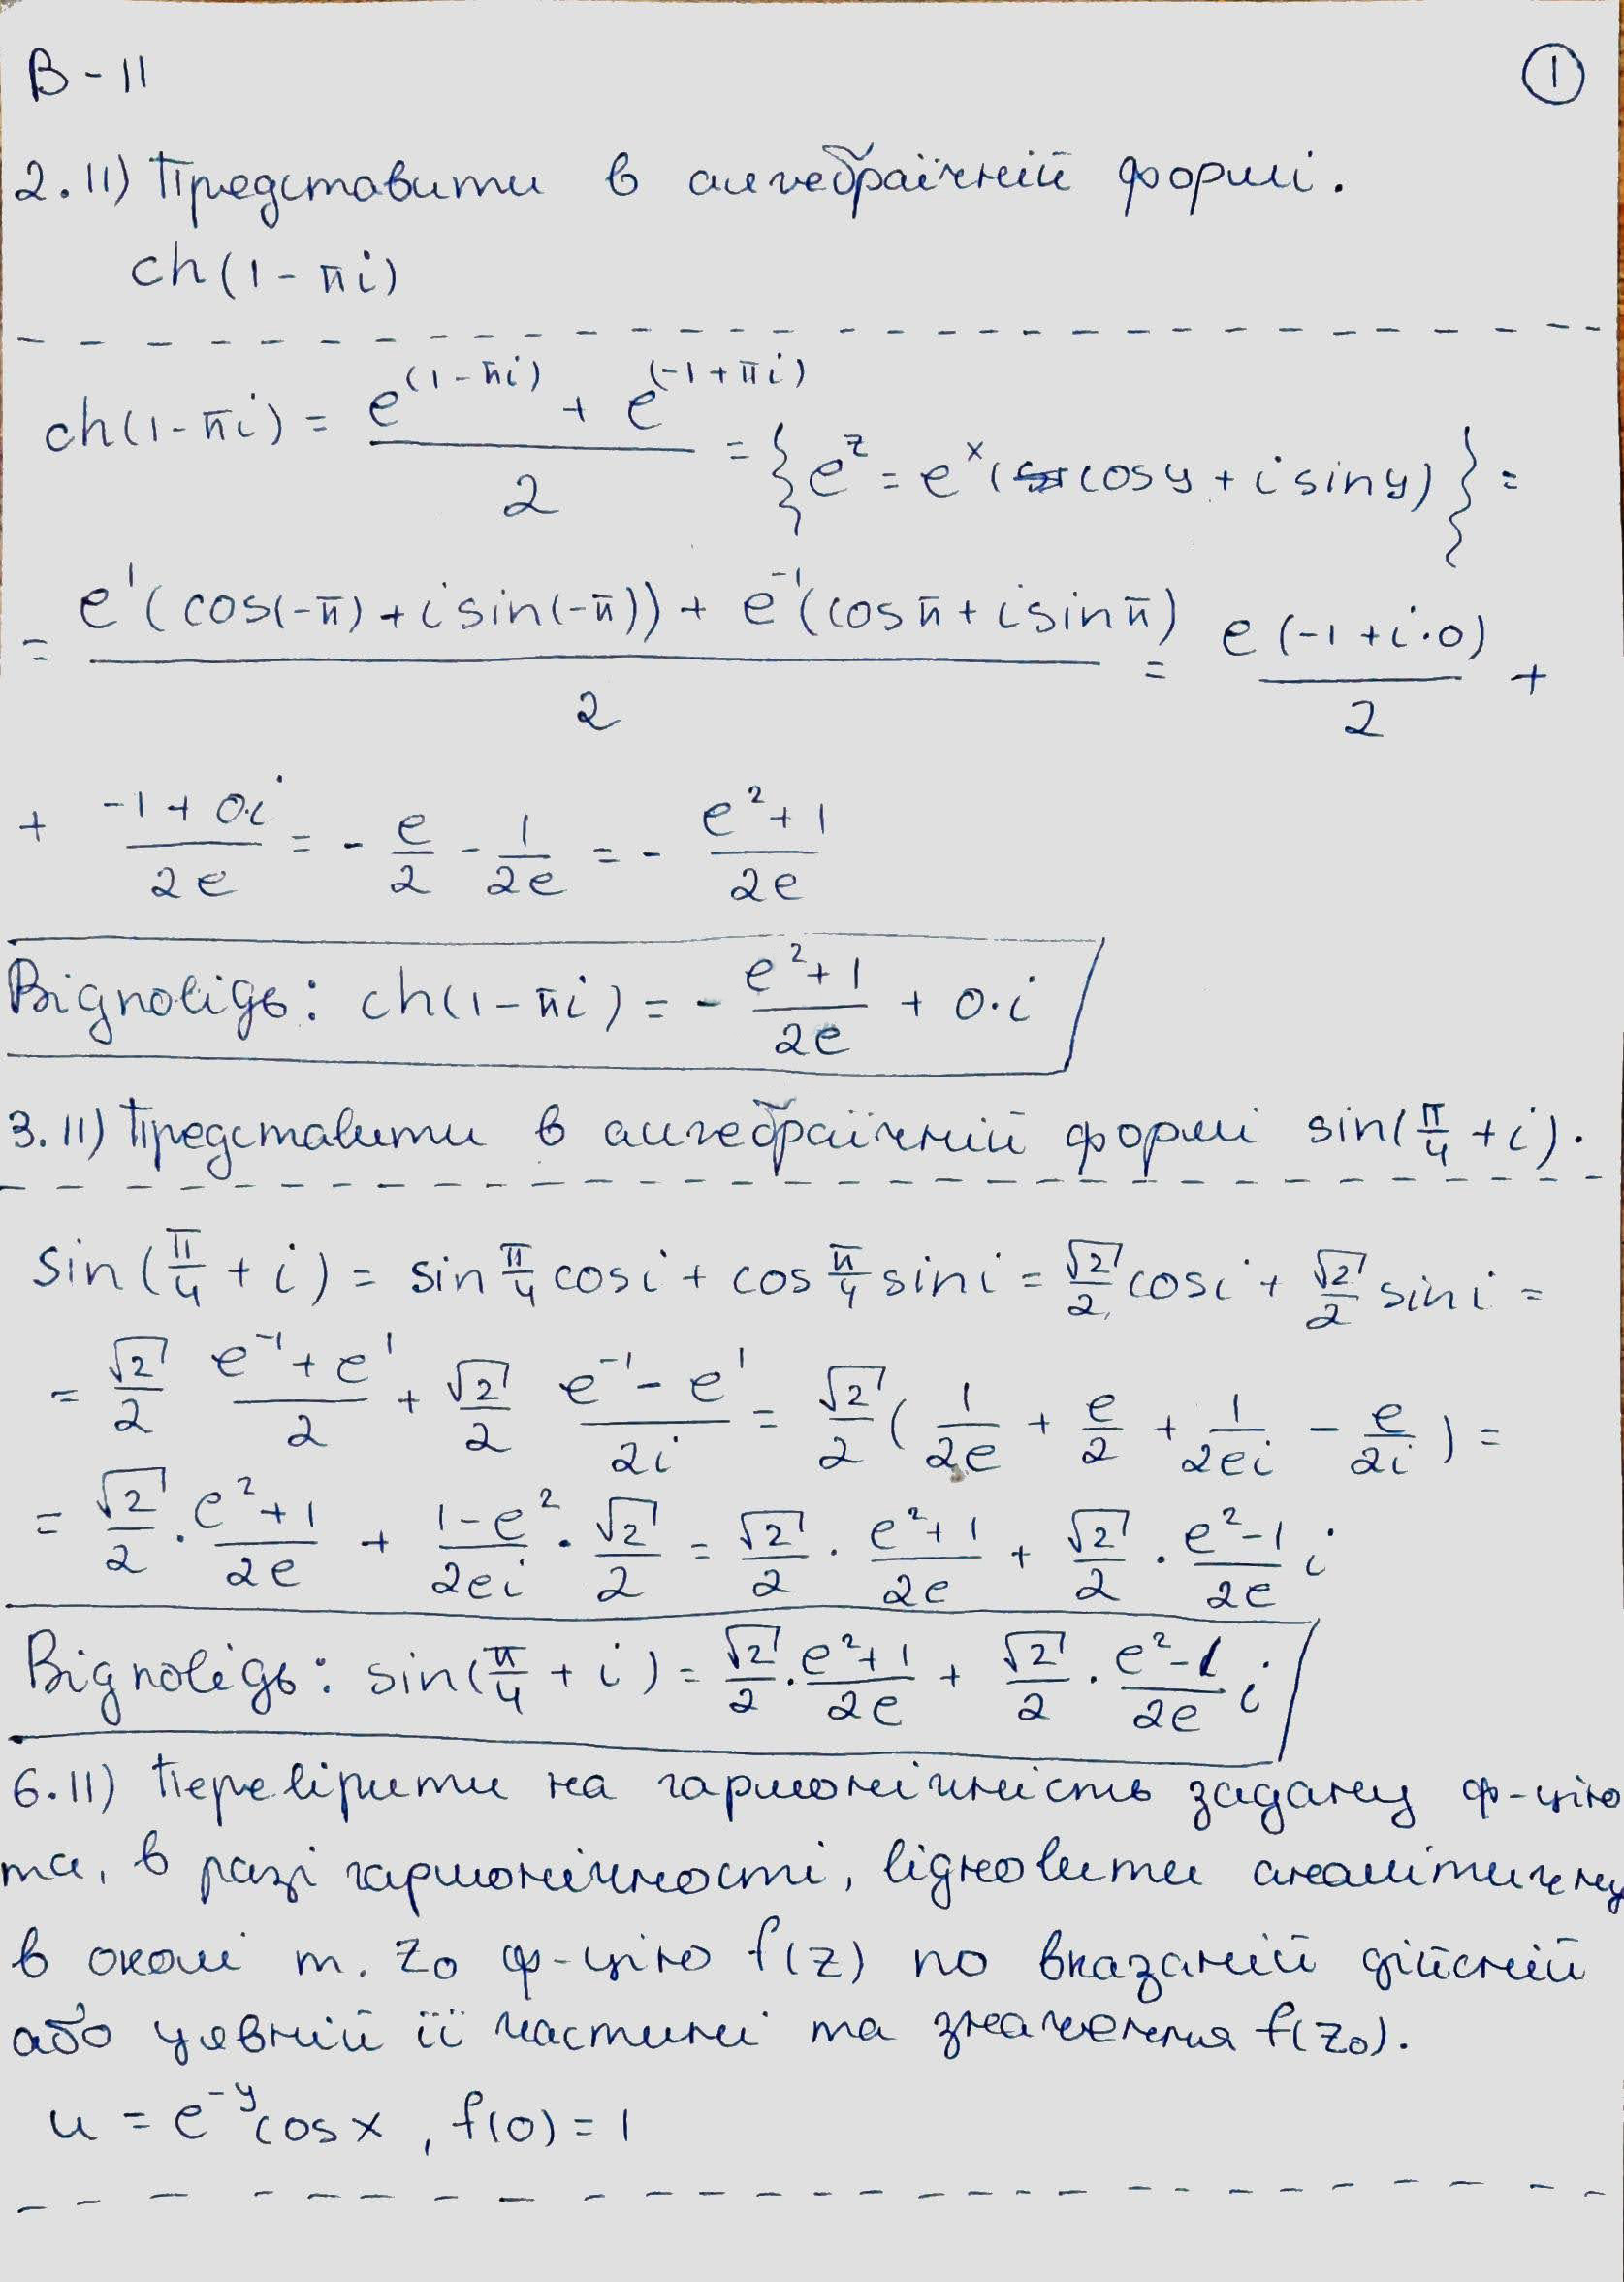 В - 11
①
2.11) Представити в алгебраїчній формі.
ch(1 - πi)
ch(1 - πi) = (e^(1 - πi) + e^(-1 + πi))/2 = {e^z = e^x(cosy + i siny)} =
= (e^1(cos(-π) + i sin(-π)) + e^-1(cosπ + i sinπ))/2 = e(-1 + i·0)/2 +
+ (-1 + 0·i)/2e = - e/2 - 1/2e = - (e²+1)/2e
Відповідь: ch(1 - πi) = - (e²+1)/2e + 0·i
3.11) Представити в алгебраїчній формі sin(π/4 + i).
sin(π/4 + i) = sin π/4 cosi + cos π/4 sini = √2/2 cosi + √2/2 sini =
= √2/2 (e^-1 + e^1)/2 + √2/2 (e^-1 - e^1)/2i = √2/2 (1/2e + e/2 + 1/2ei - e/2i) =
= √2/2 · (e²+1)/2e + (1-e²)/2ei · √2/2 = √2/2 · (e²+1)/2e + √2/2 · (e²-1)/2e i
Відповідь: sin(π/4 + i) = √2/2 · (e²+1)/2e + √2/2 · (e²-1)/2e i
6.11) Перевірити на гармонічність задану ф-цію
та, в разі гармонічності, відновити аналітичну
в околі т. z₀ ф-цію f(z) по вказаній дійсній
або уявній її частині та значення f(z₀).
u = e^-y cosx, f(0) = 1